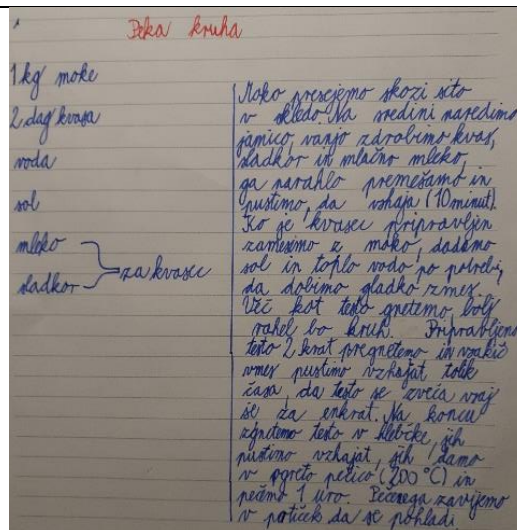 Peka kruha
1 kg moke
2 dag kvasa
voda
sol
mleko
sladkor
za kvasec
Moko presejemo skozi sito
v skledo. Na sredini naredimo
jamico, vanjo zdrobimo kvas,
sladkor in mlačno mleko,
ga narahlo premešamo in
pustimo, da vzhaja (10 minut).
Ko je kvasec pripravljen
zamesimo z moko, dodamo
sol in toplo vodo po potrebi,
da dobimo gladko zmes.
Več kot testo gnetemo, bolj
rahel bo kruh. Pripravljeno
testo 2 krat pregnetemo in vsakič
vmes pustimo vzhajat tolk
časa, da testo se zveča vsaj
še za enkrat. Na koncu
zgnetemo testo v hlebčke, jih
pustimo vzhajat, jih damo
v ogreto pečico (200 °C) in
pečmo 1 uro. Pečenega zavijemo
v prtiček da se pohladi